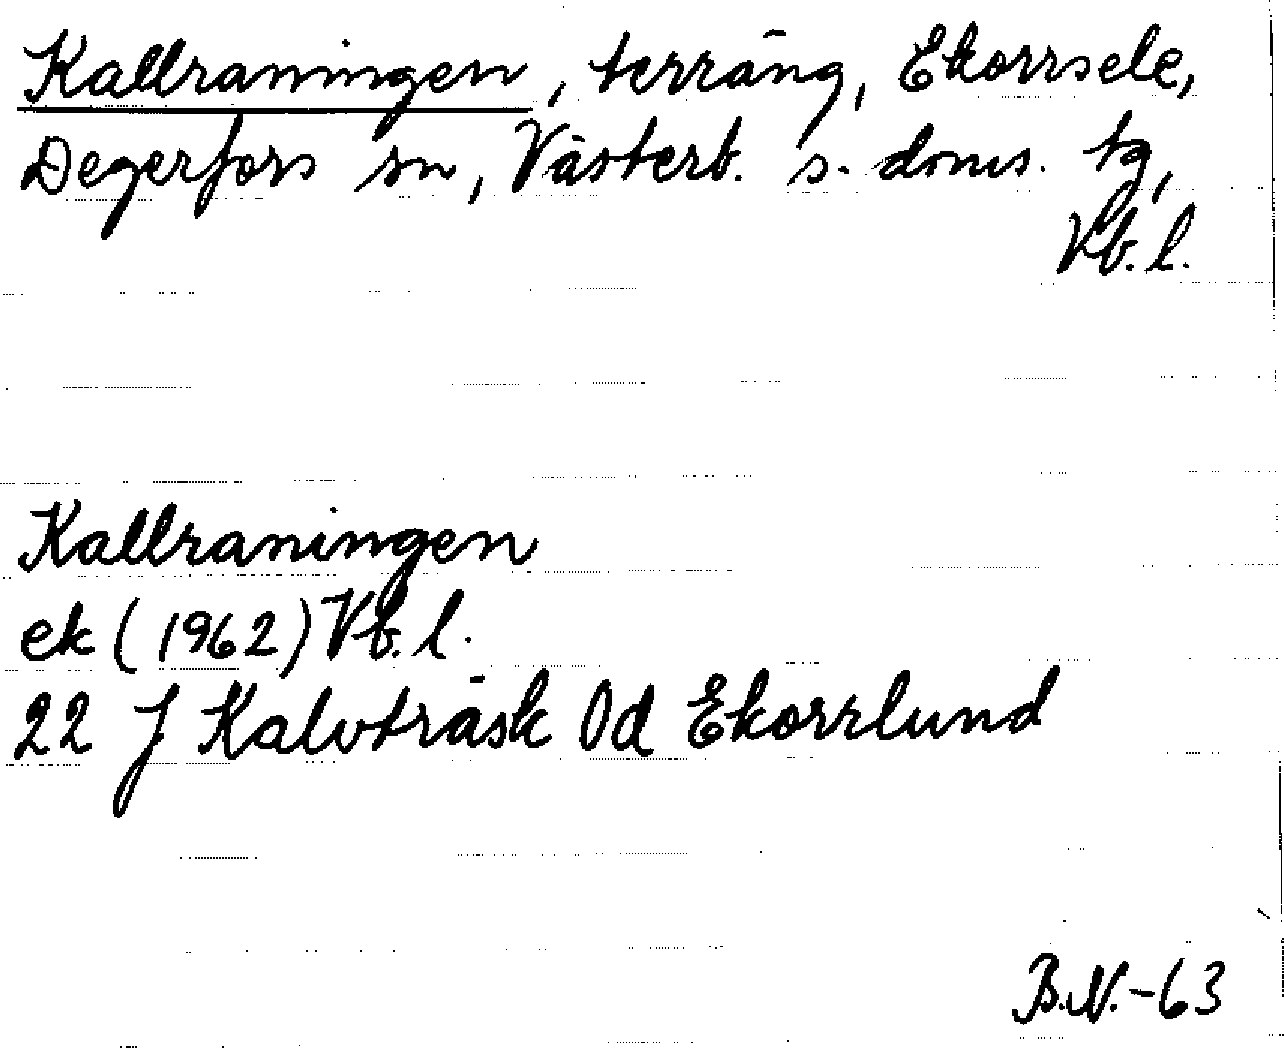 Kallraningen, terräng, Ekorrsele,
Degerfors sn, Västerb. s. doms. tg,
Vb. l.
Kallraningen
ek (1962) Vb. l.
22 J Kalvträsk 0d Ekorrlund
B.N.-63